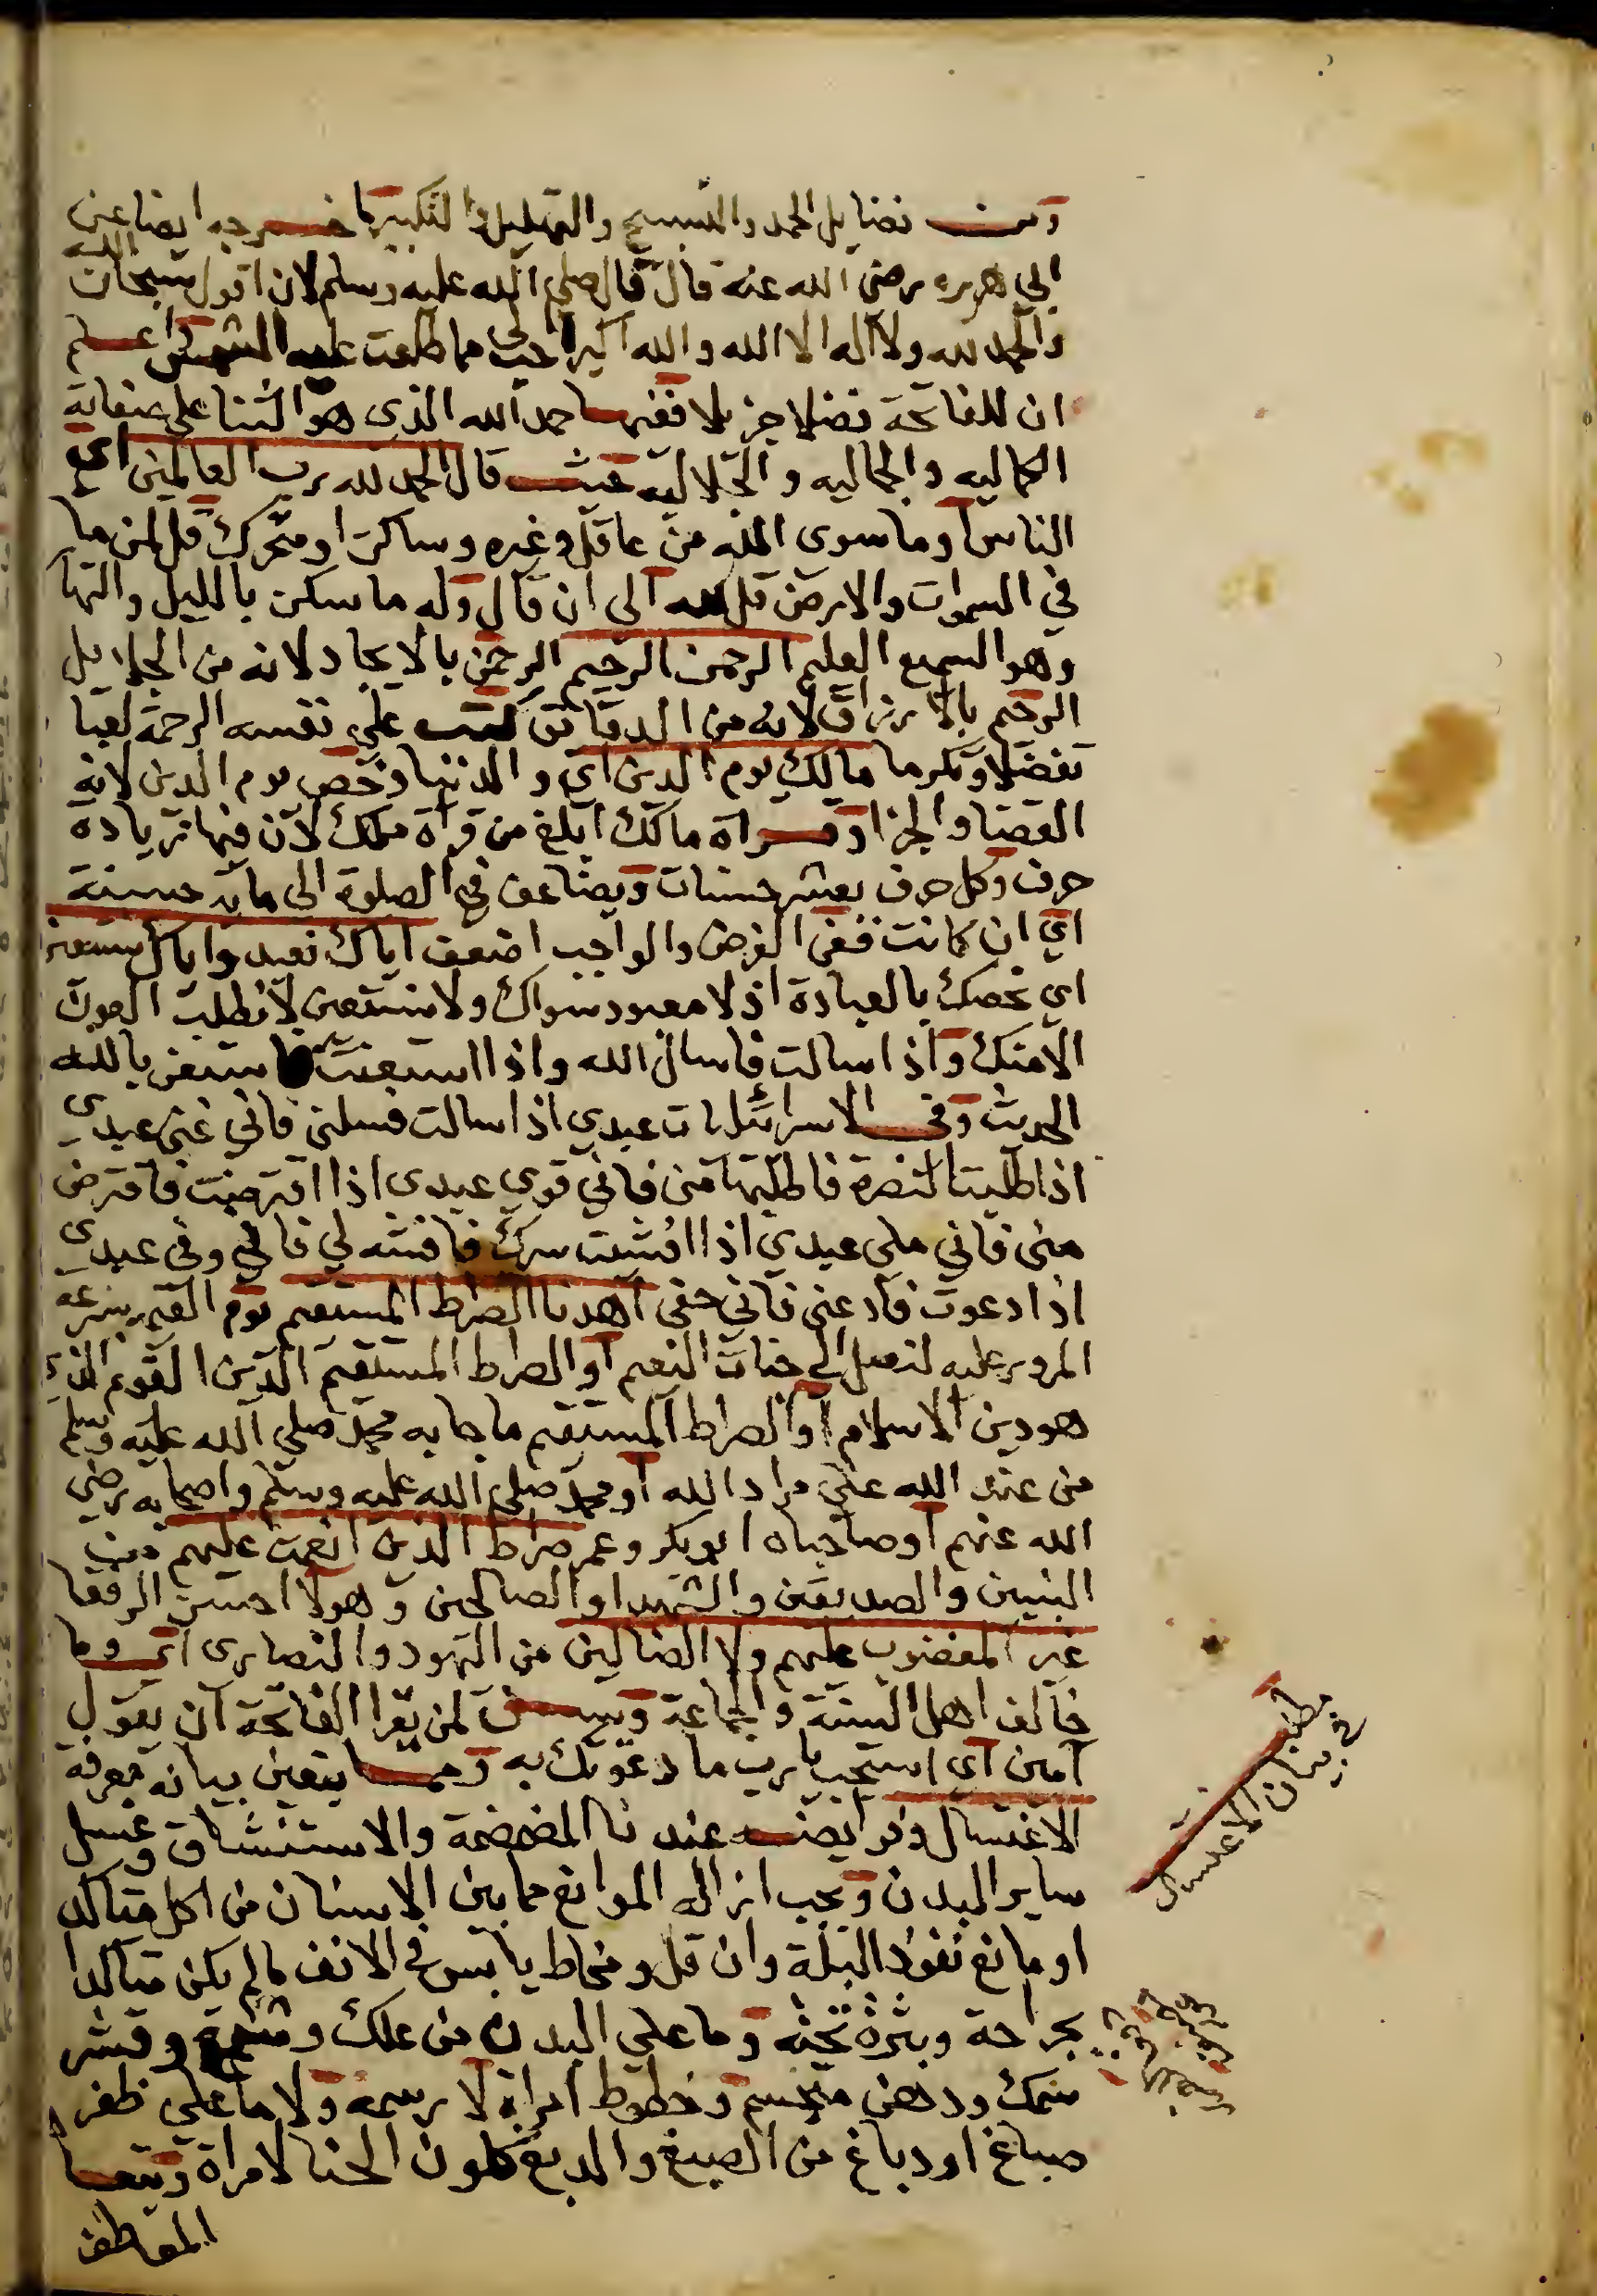 ومن فضايل الحمد والتسبيح والتهليل والتكبير ما خرجه ايضا عن
ابي هريره رضي الله عنه قال قال صلي الله عليه وسلم لان اقول سبحان الله
والحمد لله ولا اله الا الله والله اكبر احب الي مما طلعت عليه الشمس واعلم
ان للفاتحة فضلا جزيلا ففيها حمد الله الذي هو الثنا علي صفاته
الكماليه والجماليه والجلاليه حيث قال الحمد لله رب العالمين اي
الناس او ما سوي الله من عاقل وغيره وساكن او متحرك قل لمن ما
في السموات والارض قل لله الي ان قال وله ما سكن بالليل والنها
وهو السميع العليم الرحمن الرحيم الرحمن بالايجاد لانه من الجلايل
الرحيم بالارزاق لانه من الدقائق كتب علي نفسه الرحمة لعبا
تفضلا وتكرما مالك يوم الدين اي والدنيا وخص يوم الدين لانه
القضا والجزا وقراة مالك ابلغ من قراة ملك لان فيها زيادة
حرف وكل حرف بعشر حسنات ويضاعف في الصلوة الي مايه حسنة
اي ان كانت ففي الفرض والواجب اضعف اياك نعبد واياك نستعين
اي نخصك بالعبادة اذ لا معبود سواك ولا نستعين لانطلب العون
الا منك واذا سالت فاسال الله واذا استعنت فاستعن بالله
الحديث وفي الاسرائليات عبدي اذا سالت فسلني فاني غني عبدي
اذا طلبت النصرة فاطلبها مني فاني قوي عبدي اذا اقترضت فاقترض
مني فاني ملي عبدي اذا افشيت سرك فافشه لي فاني وفي عبدي
اذا دعوت فادعني فاني حفي اهدنا الصراط المستقيم يوم القيمه بسرعه
المرور عليه لنصل الي جنات النعيم او الصراط المستقيم الدين القويم الذي
هو دين الاسلام او الصراط المستقيم ما جا به محمد صلي الله عليه وسلم
من عند الله علي مراد الله او محمد صلي الله عليه وسلم واصحابه رضي
الله عنهم او صاحباه ابو بكر وعمر صراط الذين انعمت عليهم من
النبيين والصديقين والشهدا والصالحين وهولا احسن الرفقا
غير المغضوب عليهم ولا الضالين من اليهود والنصاري اي وما
خالف اهل السنة والجماعة ويسن لمن يقرا الفاتحة ان يقول
آمين اي استجب يا رب ما دعوتك به ومما يتعين بيانه معرفة
الاغتسال وفرايضه عندنا المضمضة والاستنشاق وغسل
ساير البدن ويجب ازالة الموانع مما بين الاسنان من اكل متاكد
او مانع نفوذ البلة وان قل ومخاط يابس في الانف مالم يكن متاكدا
بجراحة وبثرة تحته وما علي البدن من علك وشمع وقشر
سمك ودهن متجسم وخطوط امراة لا رسمه ولا ما علي ظفر
صباغ او دباغ من الصبغ والدبغ كلون الحنا لامراة ويتعا
المعاطف
مطلب
في بيان الاغتسال